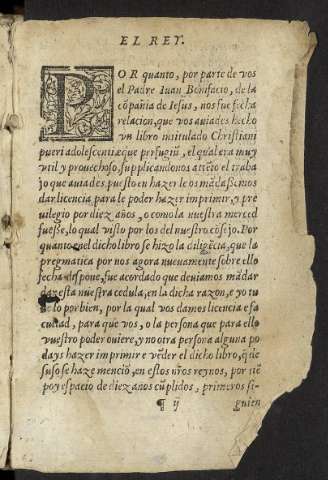 EL REY.
POR quanto, por parte de vos
el Padre Iuan Bonifacio, de la
cõpañia de Iesus, nos fue fecha
relacion, que vos auiades hecho
vn libro intitulado Christiani
pueri adolescentiæque perfugiũ, el qual era muy
vtil y prouechoso, supplicandonos attẽto el traba
jo que auiades puesto en hazer los mãdassemos
dar licencia para le poder hazer imprimir, y pre
uilegio por diez años, o como la nuestra merced
fuesse, lo qual visto por los del nuestro cõsejo. Por
quanto en el dicho libro se hizo la diligẽcia, que la
pregmatica por nos agora nueuamente sobre ello
fecha dispone, fue acordado que deuiamos mãdar
dar esta nuestra cedula, en la dicha razon, e yo tu
ue lo por bien, por la qual vos damos licencia e fa
cultad, para que vos, o la persona que para ello
vuestro poder ouiere, y no otra persona alguna po
days hazer imprimir e vẽder el dicho libro, q̃ de
suso se haze menciõ, en estos nr̃os reynos, por tiẽ
po y espacio de diez años cũplidos, primeros si-
¶ ij guien